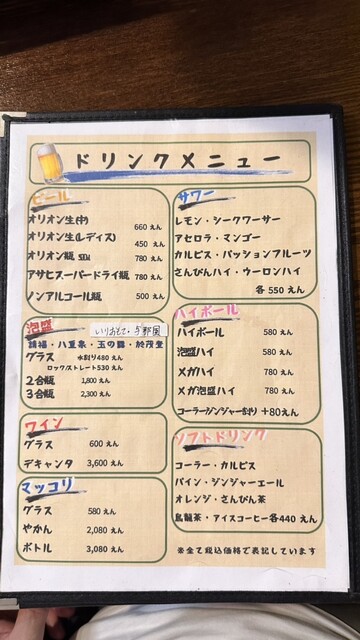 ドリンクメニュー
ビール
オリオン生(中) 660えん
オリオン生(レディス) 450えん
オリオン瓶 780えん
アサヒスーパードライ瓶 780えん
ノンアルコール瓶 500えん
泡盛
いりおもて・与那国
請福・八重泉・玉の露・於茂登
グラス 水割り480えん
ロック/ストレート530えん
2合瓶 1,800えん
3合瓶 2,300えん
ワイン
グラス 600えん
デキャンタ 3,600えん
マッコリ
グラス 580えん
やかん 2,080えん
ボトル 3,080えん
サワー
レモン・シークワーサー
アセロラ・マンゴー
カルピス・パッションフルーツ
さんぴんハイ・ウーロンハイ
各550えん
ハイボール
ハイボール 580えん
泡盛ハイ 580えん
メガハイ 780えん
メガ泡盛ハイ 780えん
コーラー/ジンジャー割り +80えん
ソフトドリンク
コーラー・カルピス
パイン・ジンジャーエール
オレンジ・さんぴん茶
烏龍茶・アイスコーヒー各440えん
※全て税込価格で表記しています